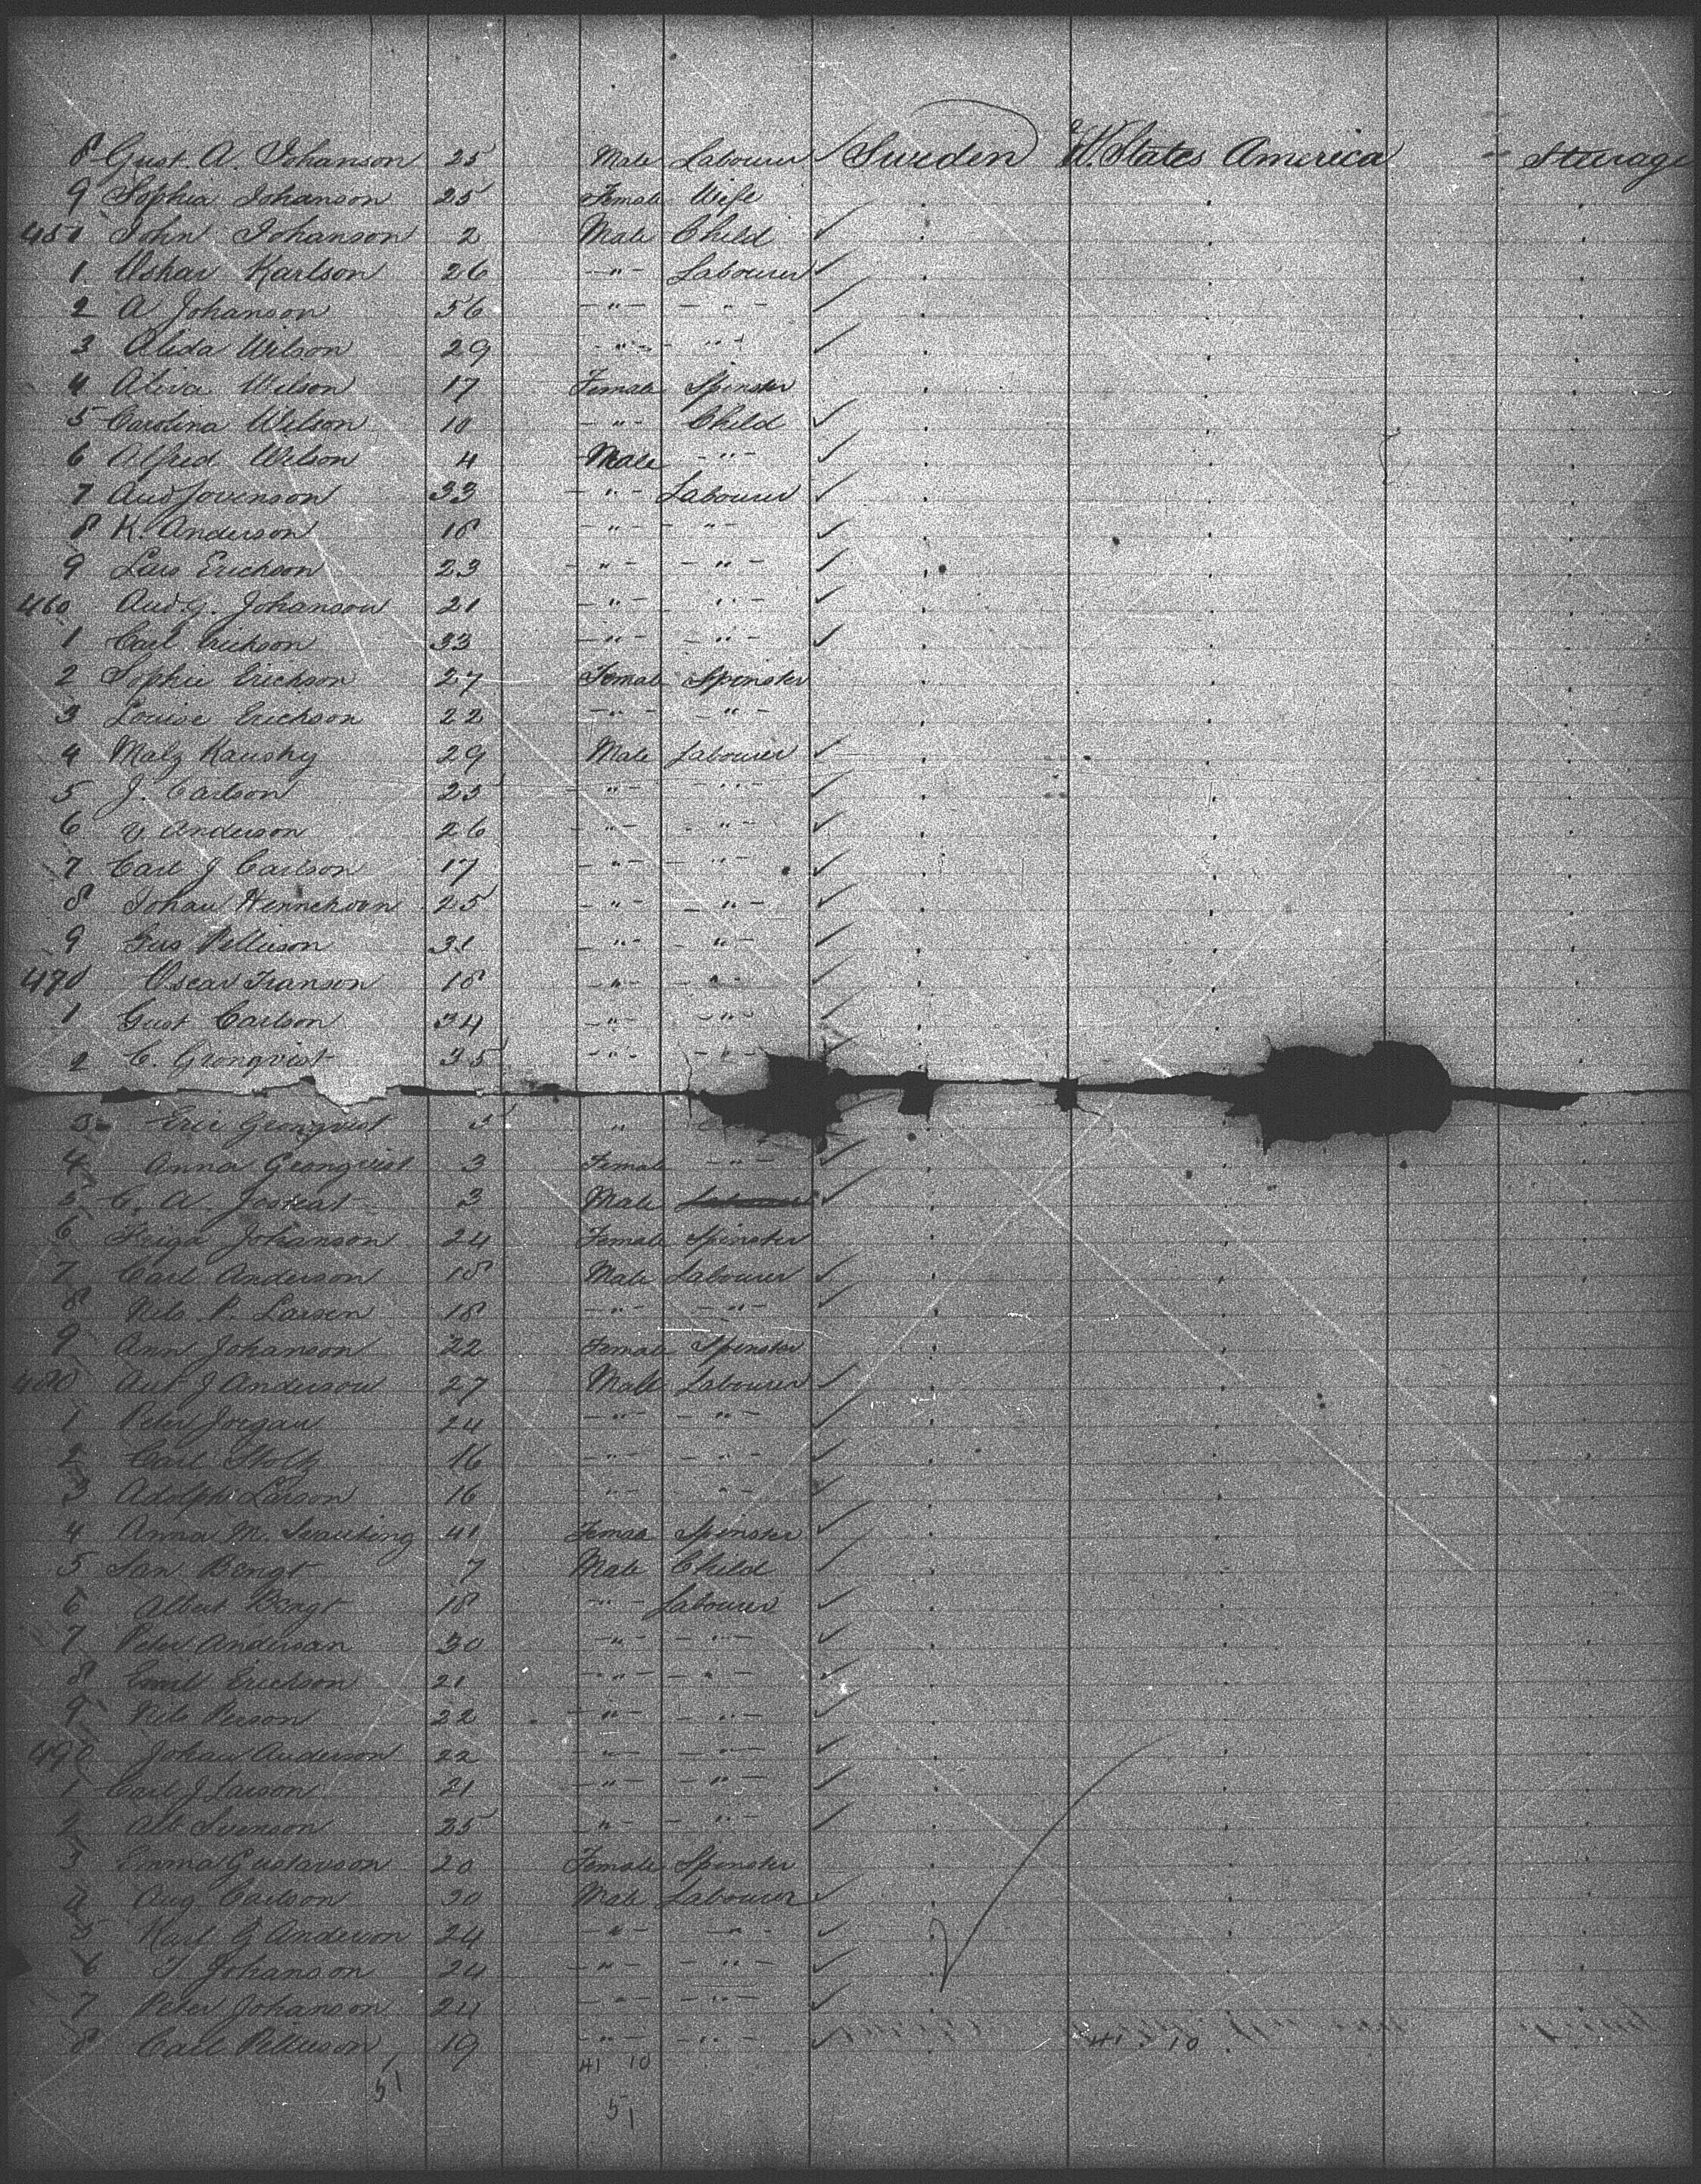 8 Gust. A. Johanson 25 Male Labourer Sweden U. States America - Steerage
9 Sophia Johanson 25 Female Wife
450 John Johanson 2 Male Child
1 Oskar Karlson 26 -"- Labourer
2 A Johanson 56 -"- -"-
3 Alida Wilson 29 -"- -"-
4 Aliva Wilson 17 Female Spinster
5 Carolina Wilson 10 -"- Child
6 Alfred Wilson 4 Male -"-
7 And Jovenson 33 -"- Labourer
8 K. Anderson 18 -"- -"-
9 Lars Erickson 23 -"- -"-
460 And G. Johanson 21 -"- -"-
1 Carl Erickson 33 -"- -"-
2 Sophie Erickson 27 Female Spinster
3 Louise Erickson 22 -"- -"-
4 Malz Kausky 29 Male Labourer
5 J. Carlson 25 -"- -"-
6 Anderson 26 -"- -"-
7 Carl J Carlson 17 -"- -"-
8 Johan 25 -"- -"-
9 Gus Petterson 31 -"- -"-
470 Oscar Franson 18 -"- -"-
1 Gust Carlson 34 -"- -"-
2 C. Gronqvist 35 -"- -"-
3 Eric Gronqvist 5 "
4 Anna Gronqvist 3 Female -"-
5 C. A. 3 Male Labourer
6 Johanson 24 Female Spinster
7 Carl Anderson 18 Male Labourer
8 Nils P. Larsen 18 -"- -"-
9 Ann Johanson 22 Female Spinster
480 Aut J Anderson 27 Male Labourer
1 Peter Jorgan 24 -"- -"-
2 Carl Stoltz 16 -"- -"-
3 Adolph Larson 16 -"- -"-
4 Anna M. 41 Female Spinster
5 Jan Bengt 7 Male Child
6 Albert Bengt 18 -"- Labourer
7 Peter Anderson 30 -"- -"-
8 Emil Erickson 21 -"- -"-
9 Nils Person 22 -"- -"-
490 Johan Anderson 22 -"- -"-
1 Carl J Larson 31 -"- -"-
2 Alb Svenson 25 -"- -"-
3 Emma Gustavson 20 Female Spinster
4 Aug Carlson 30 Male Labourer
5 Karl G Anderson 24 -"- -"-
6 Johanson 24 -"- -"-
7 Peter Johanson 24 -"- -"-
8 Carl Petterson 19 -"- -"- 41 10
51 41 10
51